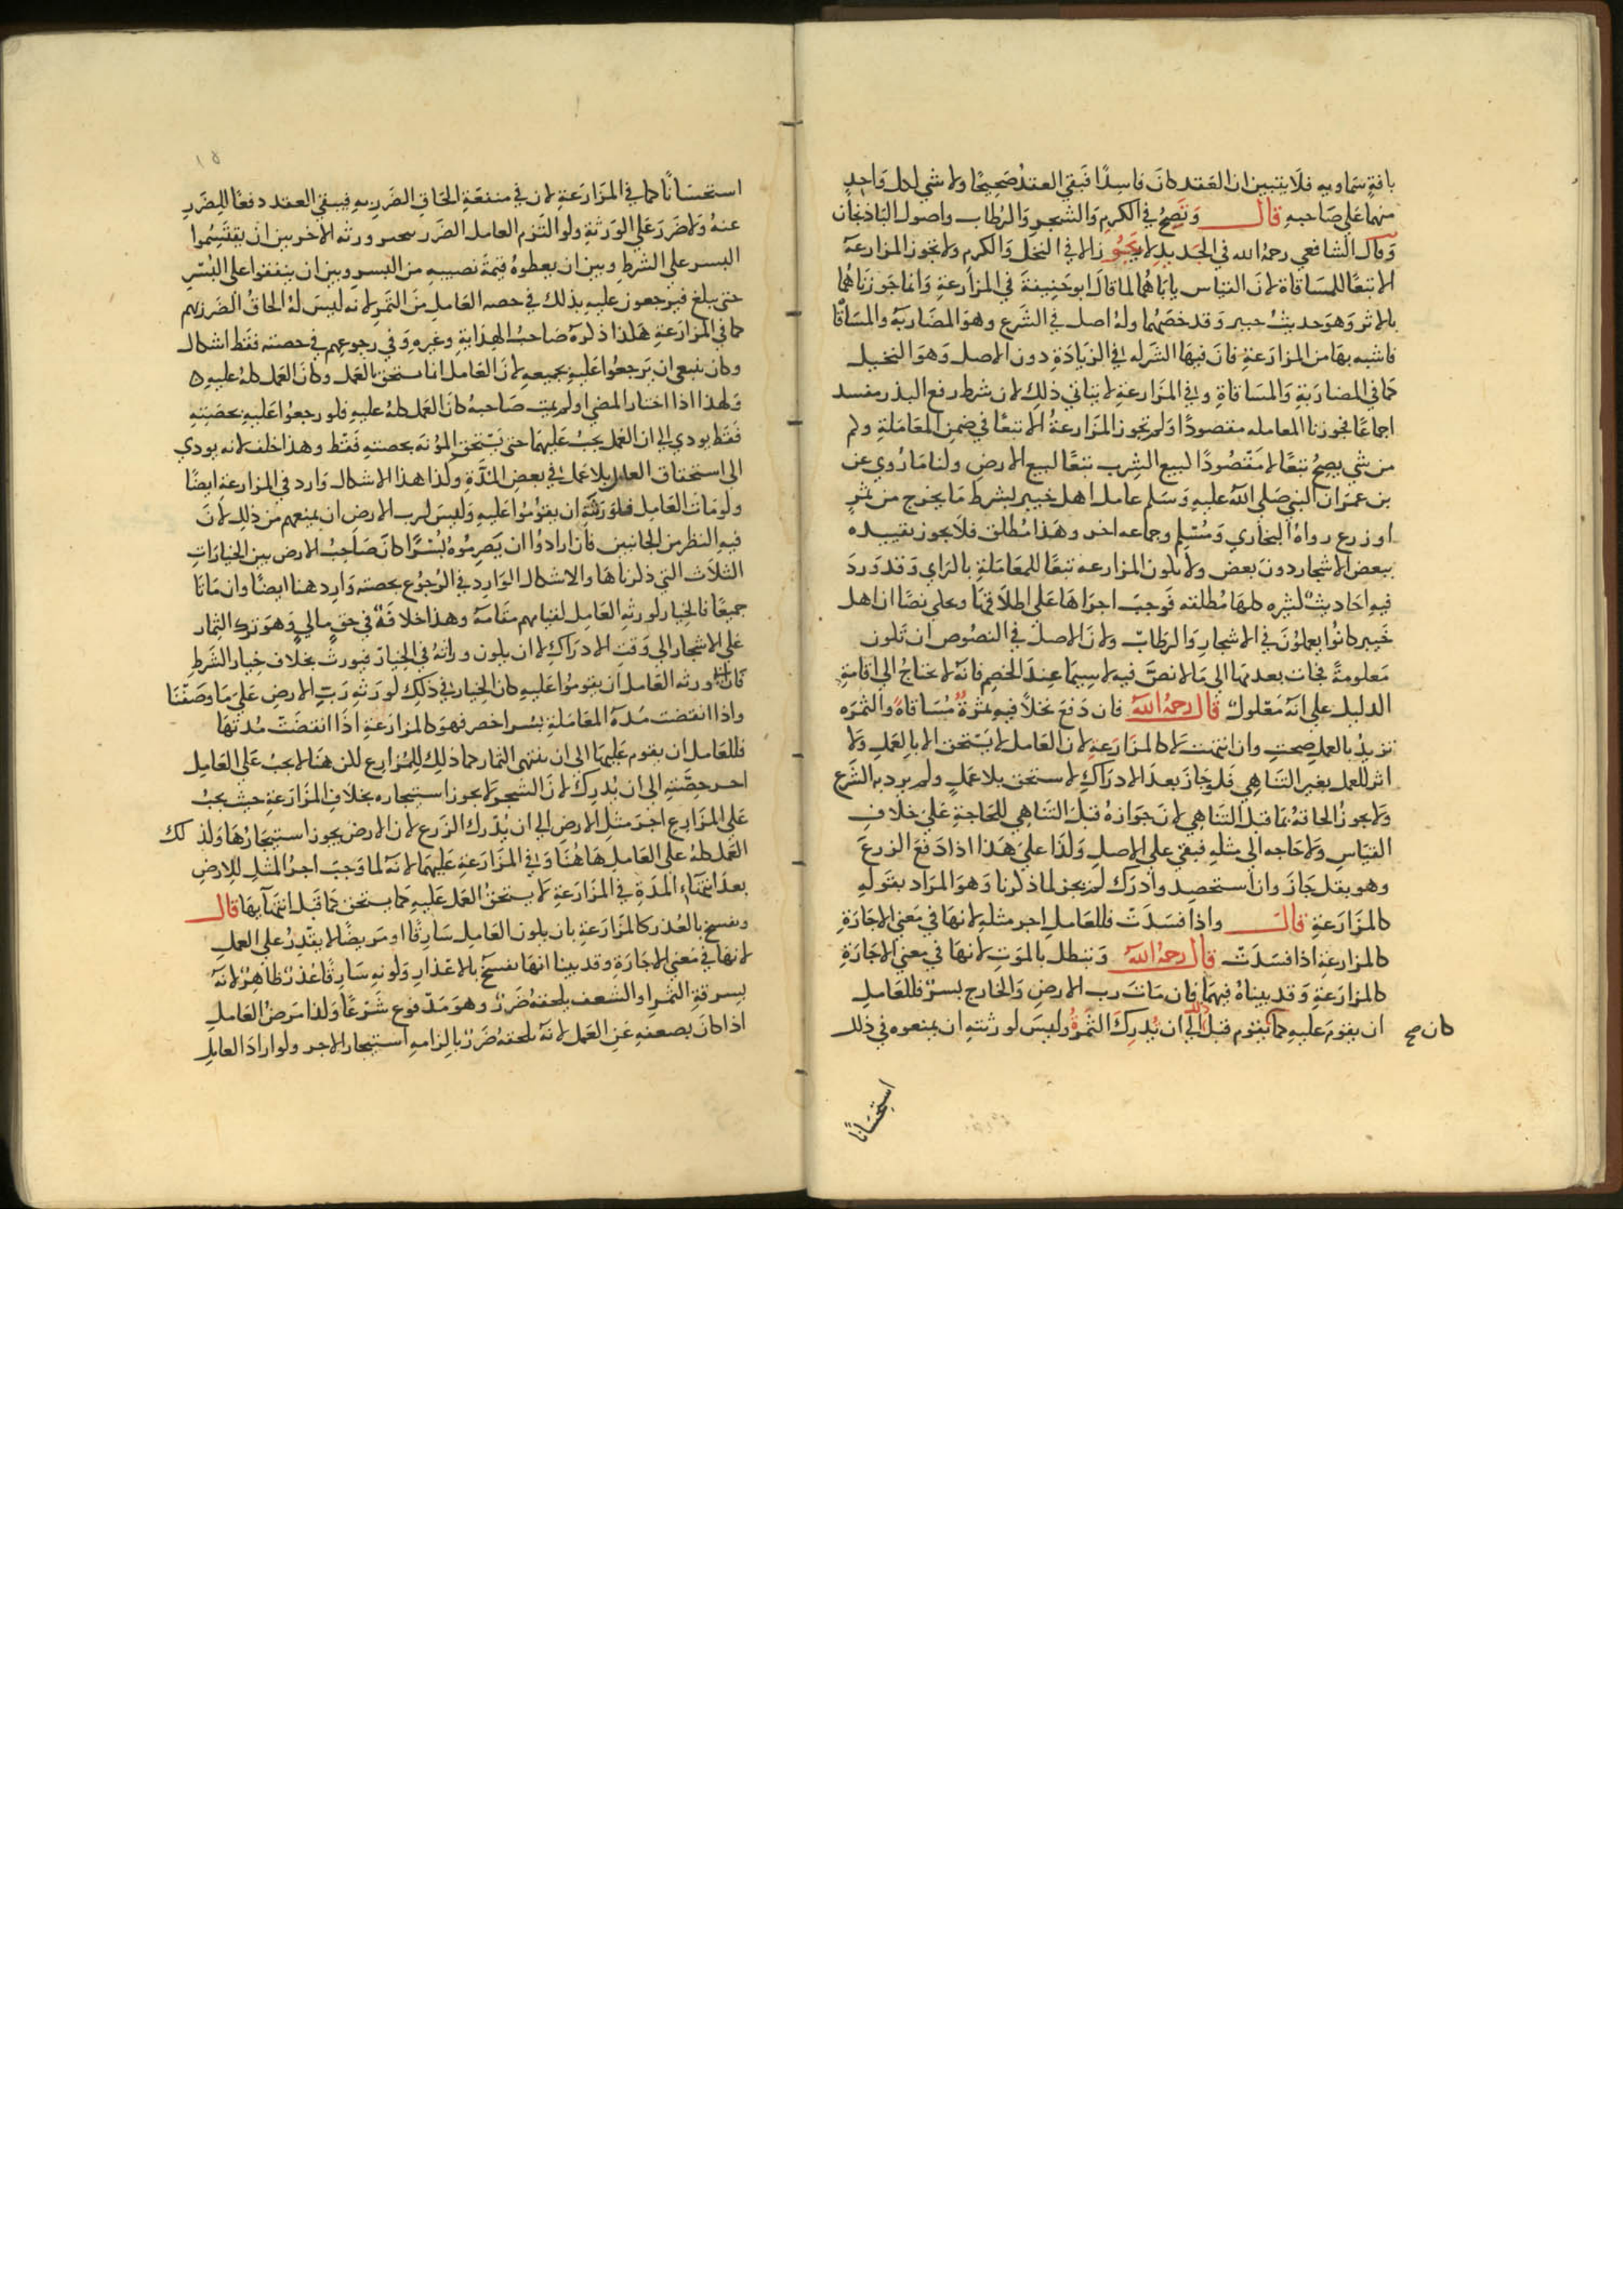 بافة سماويه فلا يتبين ان العقد كان فاسدا فبقي العقد صحيحا ولا شي لكل واحد
منهما على صاحبه قال وتصح في الكرم والشجر والرطاب واصول الباذنجان
وقال الشافعي رحمه الله في الجديد لا يجوز الا في النخل والكرم ولا تجوز المزارعة
الا تبعا للمساقاة لان القياس ياباهما لما قال ابو حنيفة في المزارعة وانما جوزناهما
بالاثر وهو حديث خيبر وقد خصهما وله اصل في الشرع وهو المضاربة والمساقاة
اشبه بها من المزارعة فان فيها الشركه في الزيادة دون الاصل وهو النخيل
كما في المضاربة والمساقاة وفي المزارعة لا يتاتي ذلك لان شرط رفع البذر مفسد
اجماعا فجوزنا المعامله مقصودا ولم تجوز المزارعة الا تبعا في ضمن المعاملة وكم
من شي يصح تبعا لا مقصودا لبيع الشرب تبعا لبيع الارض ولنا ما روي عن
بن عمر ان النبي صلي الله عليه وسلم عامل اهل خيبر بشرط ما يخرج من ثمر
او زرع رواه البخاري ومسلم وجماعه اخر وهذا مطلق فلا يجوز تقييده
ببعض الاشجار دون بعض ولا بكون المزارعه تبعا للمعاملة بالراي وقد ورد
فيه احاديث كثيره كلها مطلقه فوجب اجراها على اطلاقها وعلي نصا ان اهل
خيبر كانوا يعملون في الاشجار والرطاب ولان الاصل في النصوص ان تكون
معلومة فجاز تعديتها الى ما لا نص فيه لا سيما عند الخصم فانه لا يحتاج الى اقامة
الدليل على انه معلول قال رحمه الله فان دفع نخلا فيه ثمرة مساقاة والثمره
تزيد بالعمل صحت وان انتهت لا كالمزارعة لان العامل لا يستحق الا بالعمل ولا
اثر للعمل بغير التناهي فلو جاز بعد الادراك لاستحق بلا عمل ولم يرد به الشرع
ولا يجوز الحاقه بما قبل التناهي لان جوازه قبل التناهي للحاجة على خلاف
القياس ولا حاجه الى مثله فبقي على الاصل ولذا علي هذا اذا دفع الزرع
وهو بقل جاز وان استحصد وادرك لم يجز لما ذكرنا وهو المراد بقوله
كالمزارعة قال واذا فسدت فللعامل اجر مثله لانها في معني الاجارة
كالمزارعة اذا فسدت قال رحمه الله وتبطل بالموت لانها في معني الاجارة
كالمزارعة وقد بيناه فيهما فان مات رب الارض والخارج بسر فللعامل
كان صح ان يقوم عليه كما يقوم قبل ذلك الي ان يدرك الثمرة وليس لورثته ان يمنعوه في ذلك
استحسانا
استحسانا كما في المزارعة لان في منفعة الحاق الضرر به فيبقي العقد دفعا للضرر
عنه ولا ضرر علي الورثة ولو التزم العامل الضرر يخير ورثه الاخر بين ان يقتسموا
البسر علي الشرط وبين ان يعطوه قيمة نصيبه من البسر وبين ان ينفقوا على البسر
حتي يبلغ فيرجعون عليه بذلك في حصه العامل من الثمر لانه ليس له الحاق الضرر بهم
كما في المزارعة هكذا ذكره صاحب الهداية وغيره وفي رجوعهم في حصته فقط اشكال
وكان ينبغي ان يرجعوا عليه بجميعه لان العامل انما يستحق بالعمل وكان العمل كله عليه
ولهذا اذا اختار المضي او لم يمت صاحبه كان العمل كله عليه فلو رجعوا عليه بحصته
فقط يودي الي ان العمل يجب عليهما حتى يستحق المونة بحصته فقط وهذا خلف لانه يودي
الى استحقاق العامل بلا عمل في بعض المدة وكذا هذا الاشكال وارد في المزارعة ايضا
ولو مات العامل فلورثته ان يقوموا عليه وليس لرب الارض ان يمنعهم من ذلك لان
فيه النظر من الجانبين فان ارادوا ان يصرموه بسرا كان صاحب الارض بين الخيارات
الثلاث التي ذكرناها والاشكال الوارد في الرجوع بحصته وارد هنا ايضا وان ماتا
جميعا فالخيار لورثه العامل لقيامهم مقامه وهذا خلافة في حق مالي وهو ترك الثمار
علي الاشجار الي وقت الادراك لا ان يكون وراثة في الخيار فيورث بخلاف خيار الشرط
فان ابي ورثه العامل ان يقوموا عليه كان الخيار في ذلك لورثه رب الارض على ما وصفنا
واذا انقضت مدة المعاملة بسرا اخضر فهو كالمزارعة اذا انقضت مدتها
فللعامل ان يقوم عليها الى ان ينتهي الثمار كما ذلك للمزارع لكن هنا لا يجب على العامل
اجر حصته الى ان يدرك لان الشجر لا يجوز استيجاره بخلاف المزارعة حيث يجب
علي المزارع اجر مثل الارض الي ان يدرك الزرع لان الارض يجوز استيجارها ولذلك
العمل كله على العامل هاهنا وفي المزارعة عليهما لانه لما وجب اجر المثل للارض
بعد انتهاء المدة في المزارعة لا يستحق العمل عليه كما يستحق كما قبل انتهايها قال
وتفسخ بالعذر كالمزارعة بان يكون العامل سارقا او مريضا لا يقدر علي العمل
لانها في معني الاجارة وقد بينا انها تفسخ بالاعذار ولونه سارقا عذر ظاهر لانه
يسرقة الثمر او الشعف يلحقه ضرر وهو مدفوع شرعا ولذا مرض العامل
اذا كان يضعفه عن العمل لانه يلحقه ضرر بالزامه استيجار الاجر ولو اراد العامل